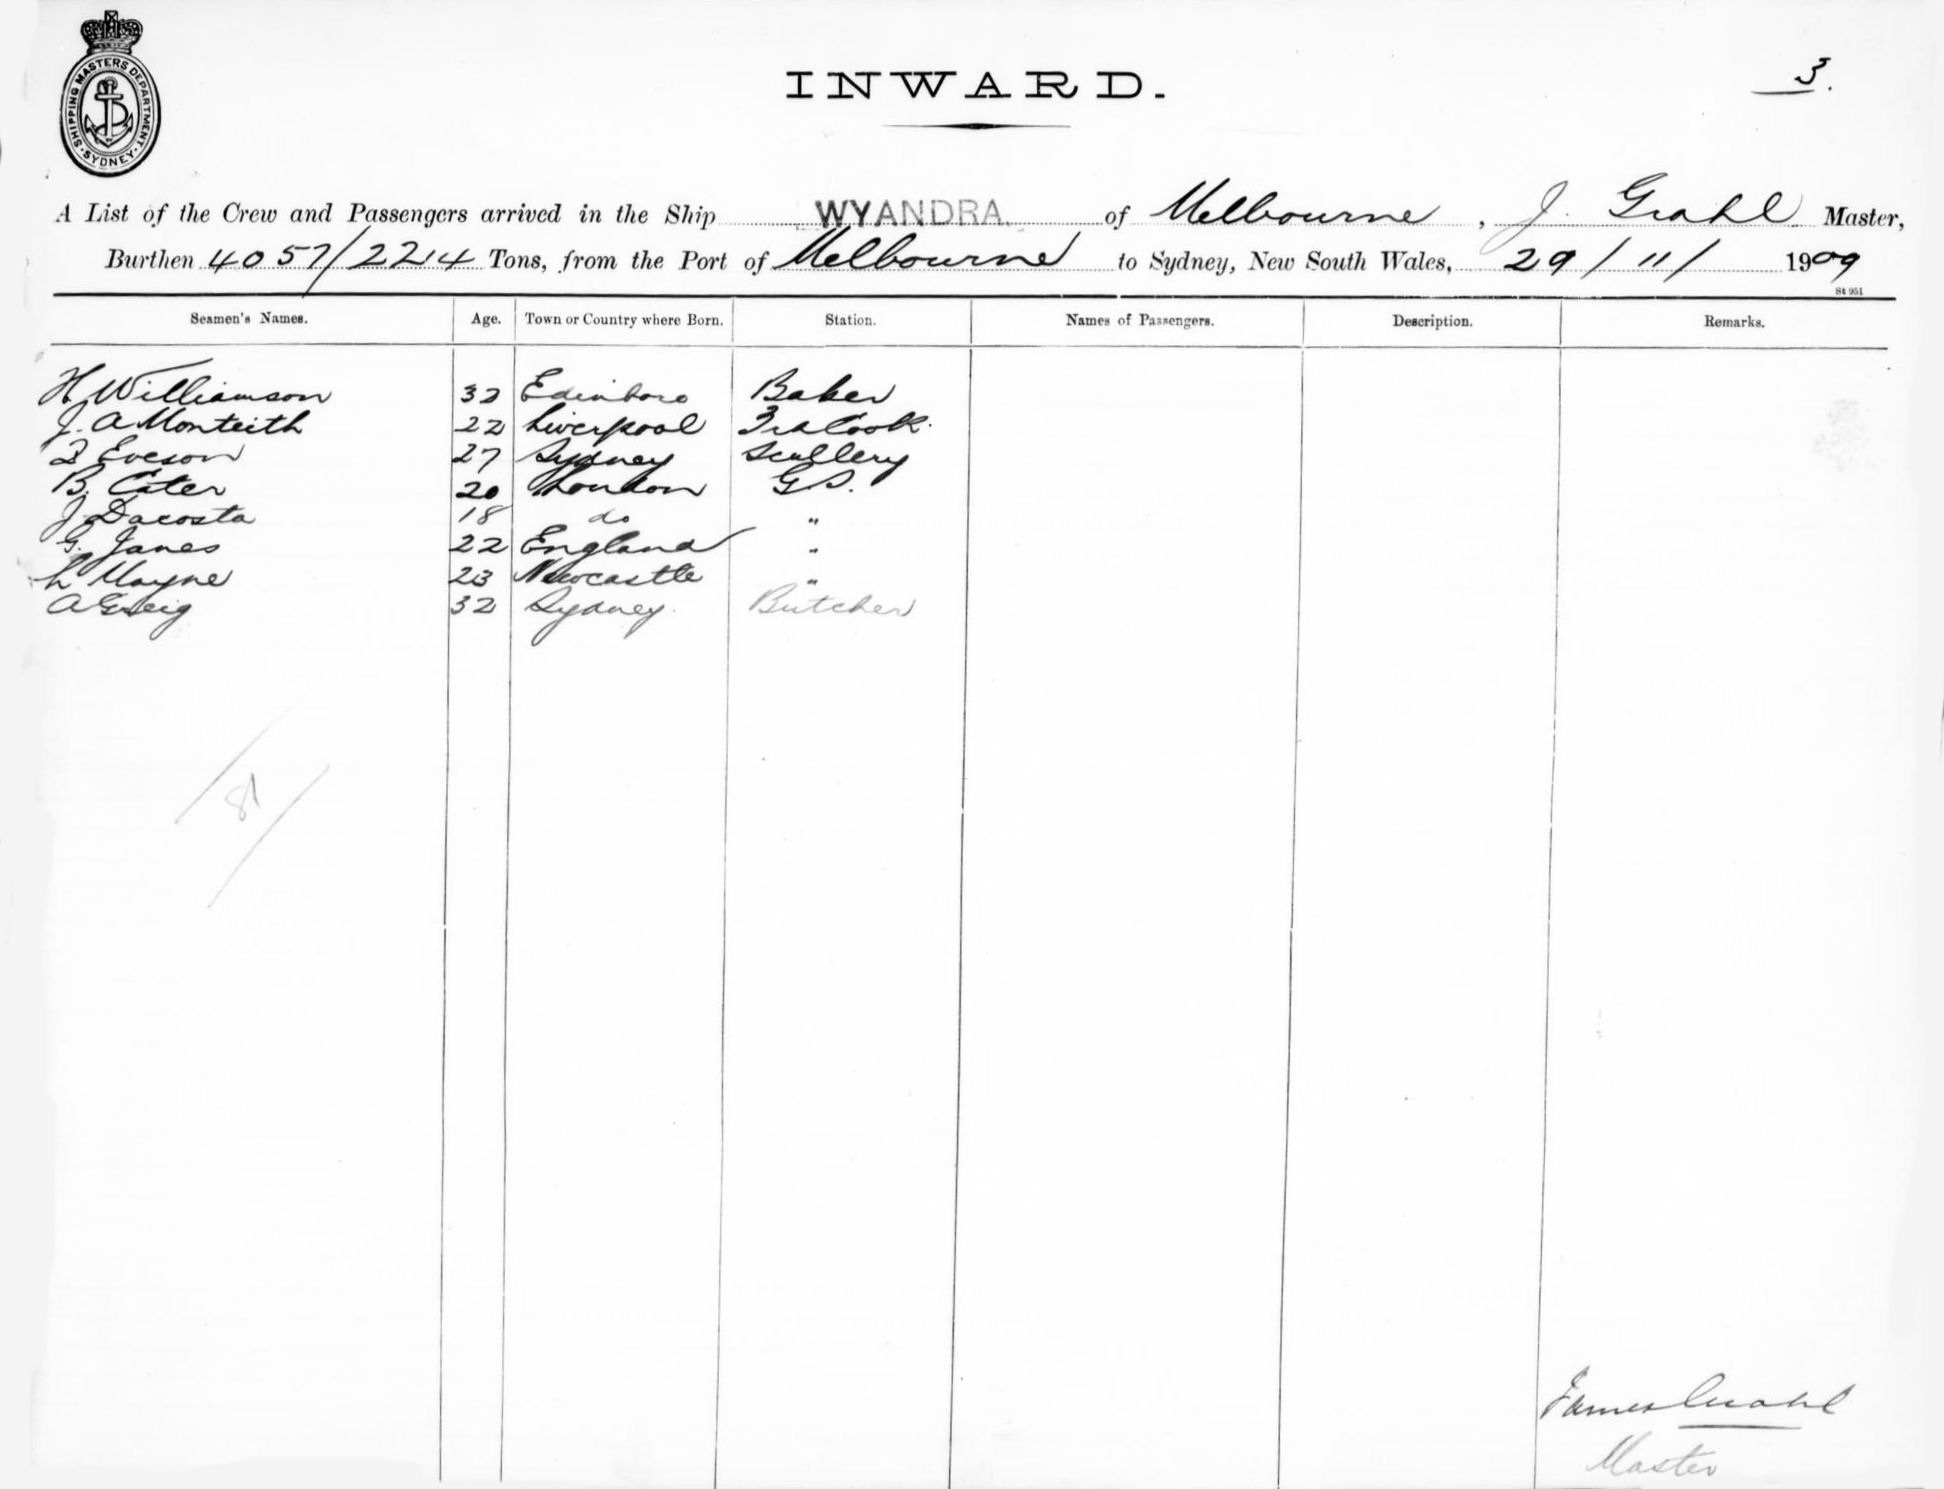 SHIPPING MASTERS DEPARTMENT. SYDNEY.
INWARD.
3.
A List of the Crew and Passengers arrived in the Ship WYANDRA of Melbourne, J. Grahl Master,
Burthen 4057/2214 Tons, from the Port of Melbourne to Sydney, New South Wales, 29/11/1909
St 951
Seamen's Names. Age. Town or Country where Born. Station. Names of Passengers. Description. Remarks.
H Williamson 32 Edinboro Baker
J. A Monteith 22 Liverpool 3rd Cook.
Eveson 27 Sydney Scullery
B. Cater 20 London G S.
J Dacosta 18 do "
G. Janes 22 England "
L Mayne 23 Newcastle "
A Greig 32 Sydney. Butcher
James Grahl
Master